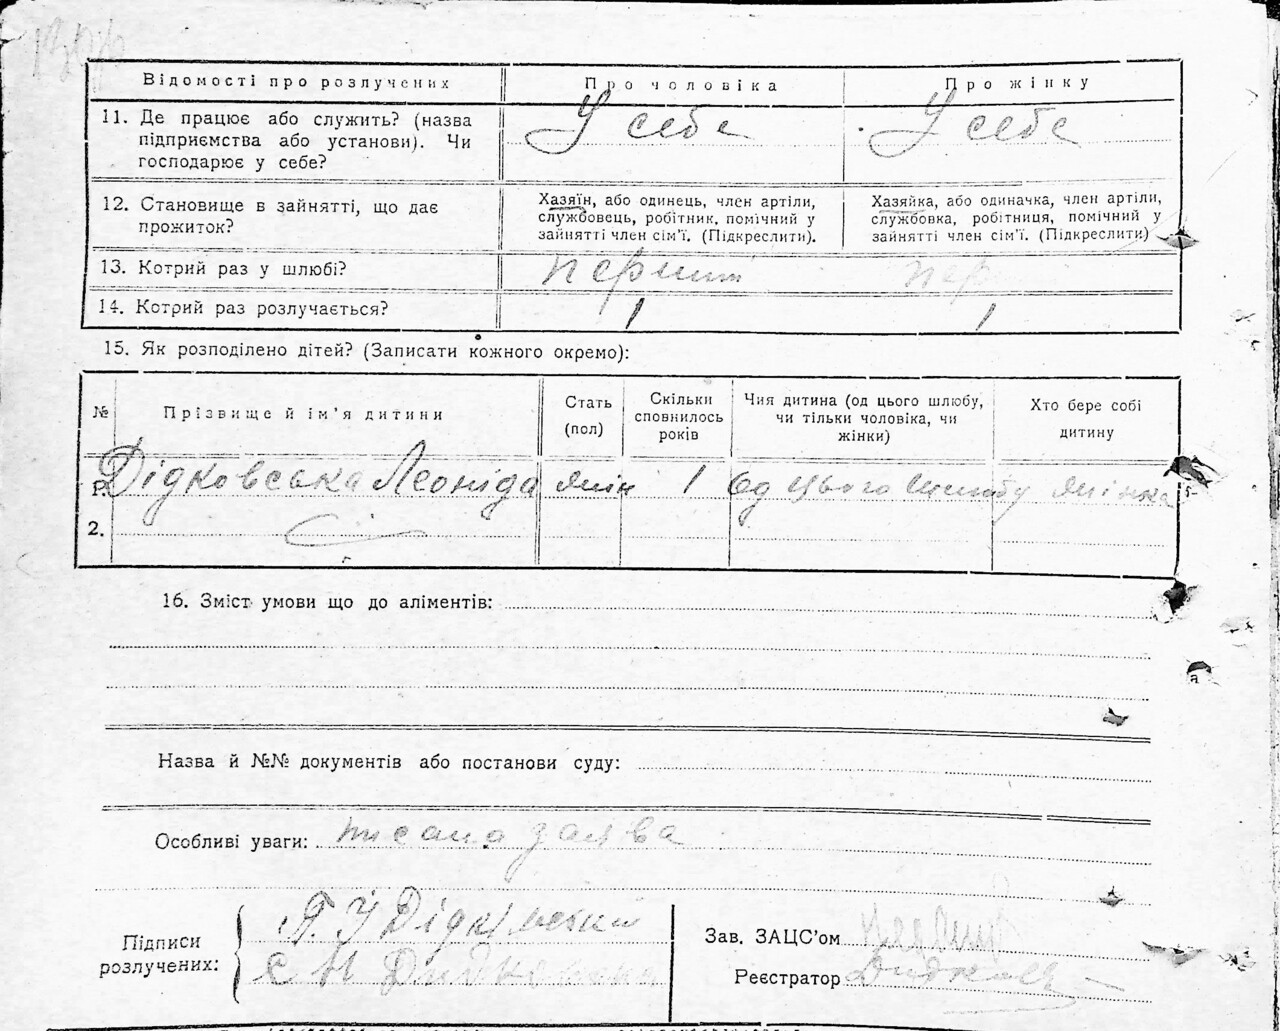 Відомості про розлучених Про чоловіка Про жінку
11. Де працює або служить? (назва
підприємства або установи). Чи
господарює у себе?
У себе У себе
12. Становище в зайнятті, що дає
прожиток?
Хазяїн, або одинець, член артілі,
службовець, робітник, помічний у
зайнятті член сім'ї. (Підкреслити).
Хазяйка, або одиначка, член артілі,
службовка, робітниця, помічний у
зайнятті член сім'ї. (Підкреслити)
13. Котрий раз у шлюбі? перший пер
14. Котрий раз розлучається? 1 1
15. Як розподілено дітей? (Записати кожного окремо):
№ Прізвище й ім'я дитини
Стать
(пол)
Скільки
сповнилось
років
Чия дитина (од цього шлюбу,
чи тільки чоловіка, чи
жінки)
Хто бере собі
дитину
Дідковська Леоніда жін 1 Од цього шлюбу жінка
2.
16. Зміст умови що до аліментів:
Назва й №№ документів або постанови суду:
Особливі уваги: писана заява
Підписи
розлучених:
Дідківський
Зав. ЗАЦС'ом
Реєстратор